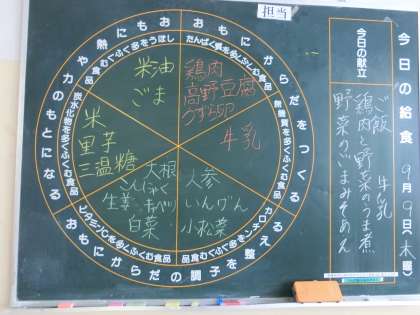 今日の給食 9月9日(木曜)
今日の献立
ご飯 牛乳
鶏肉と野菜のうま煮
野菜のごまみそあえ
担当
おもにからだをつくる
たんぱく質を多くふくむ食品
鶏肉
高野豆腐
うずら卵
無機質を多くふくむ食品
牛乳
おもにからだの調子を整える
カロチンを多くふくむ食品
人参
いんげん
小松菜
ビタミンCを多くふくむ食品
大根
こんにゃく
生姜 キャベツ
白菜
おもに熱や力のもとになる
炭水化物を多くふくむ食品
米
里芋
三温糖
しぼうを多くふくむ食品
米油
ごま